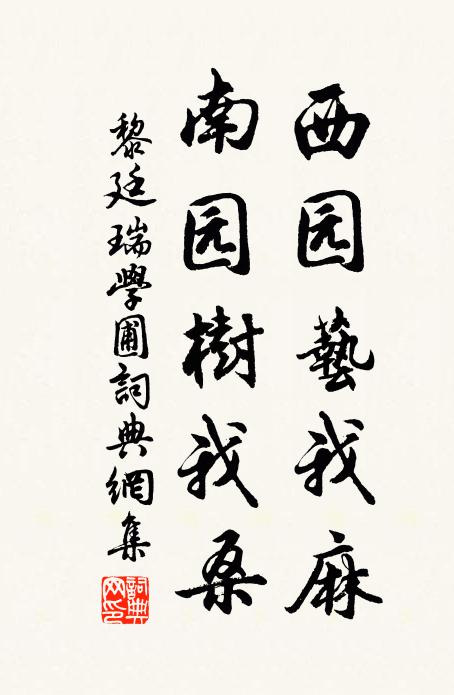 西园藝我麻
南园樹我桑
黎廷瑞學圃詞典網集
詞典
网印